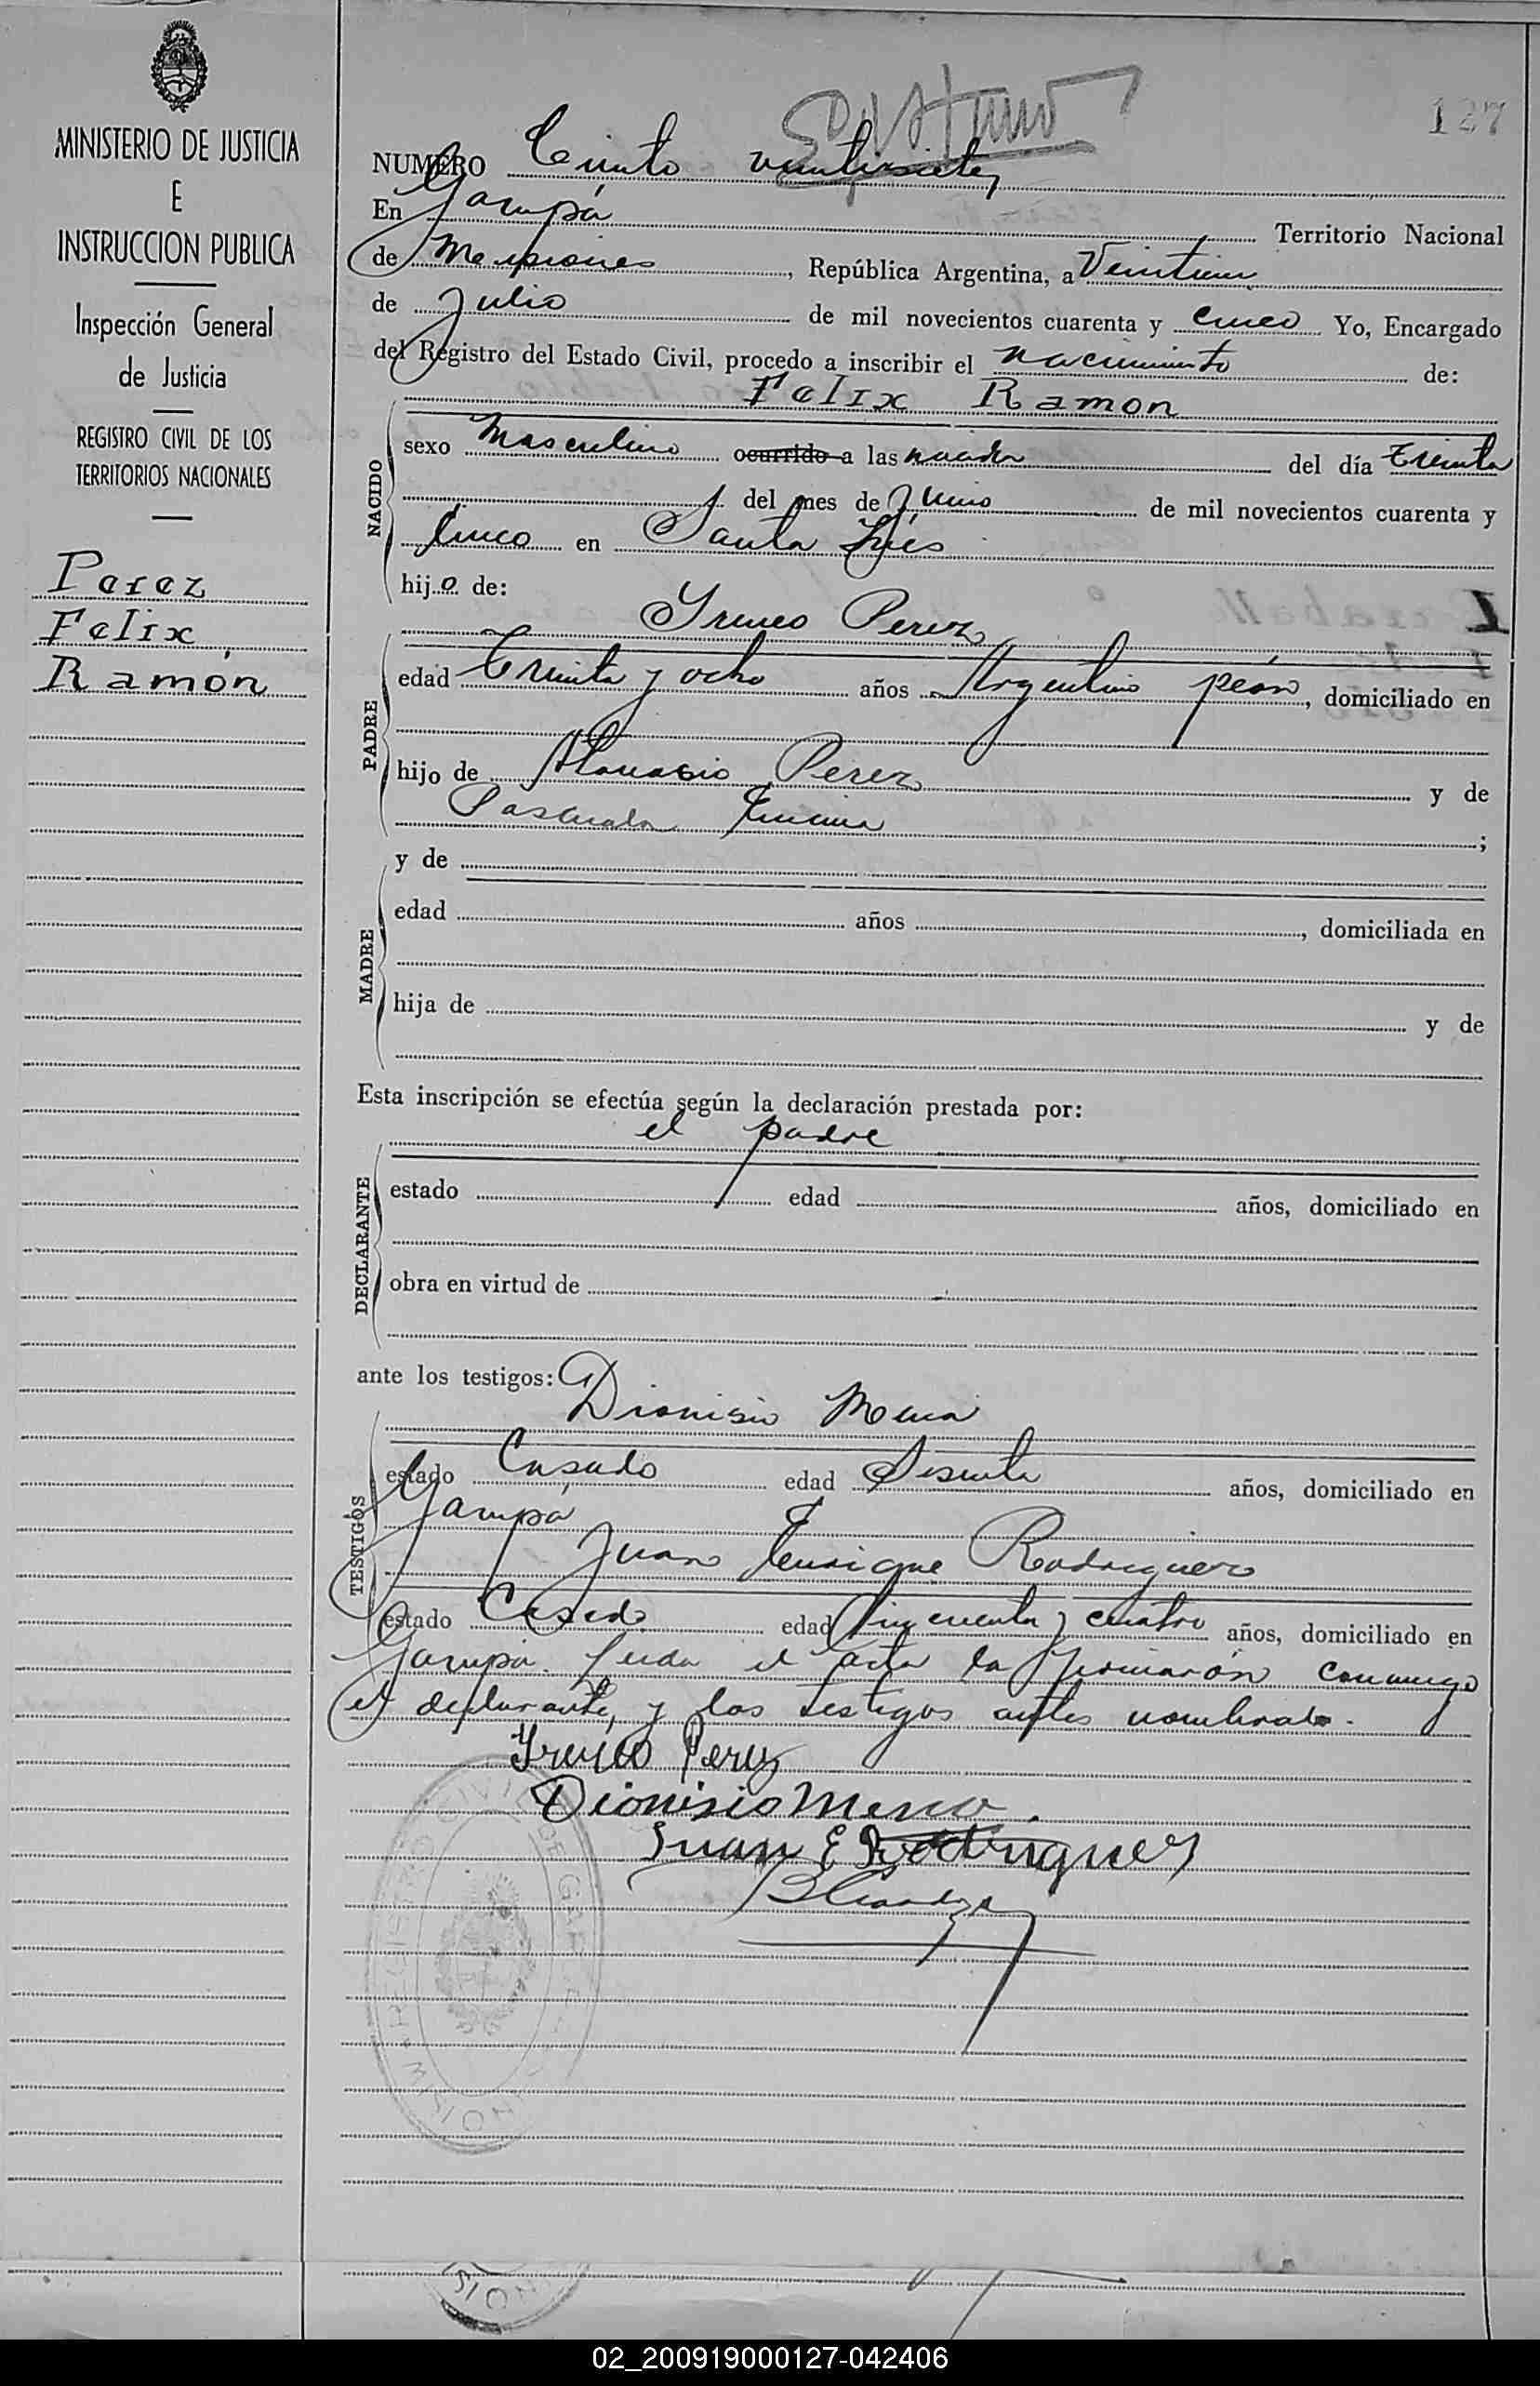 MINISTERIO DE JUSTICIA
E
INSTRUCCION PUBLICA
Inspección General
de Justicia
REGISTRO CIVIL DE LOS
TERRITORIOS NACIONALES
Perez
Felix
Ramón
127
NUMERO Ciento veintisiete
En Garupá Territorio Nacional
de Misiones, República Argentina, a Veintiun
de Julio de mil novecientos cuarenta y cinco Yo, Encargado
del Registro del Estado Civil, procedo a inscribir el nacimiento de:
Felix Ramon
NACIDO
sexo Masculino ocurrido a las del día treinta
del mes de Junio de mil novecientos cuarenta y
Cinco en Santa Inés
hijo de:
Ireneo Perez
PADRE
edad Treinta y ocho años Argentino peón, domiciliado en
hijo de Atanasio Perez y de
Pascuala ;
MADRE
y de
edad años , domiciliada en
hija de y de
Esta inscripción se efectúa según la declaración prestada por:
el padre
DECLARANTE
estado edad años, domiciliado en
obra en virtud de
ante los testigos:
Dionisio Mena
TESTIGOS
estado Casado edad Sesenta años, domiciliado en
Garupá
Juan Enrique Rodriguez
estado Casado edad Cincuenta y cuatro años, domiciliado en
Garupá. Leida el acta la firmaron conmigo
el declarante, y los testigos antes nombrados.
Ireneo Perez
Dionisio Mena.
Juan E Rodriguez
REGISTRO CIVIL DE GARUPA
MISIONES
02_200919000127-042406